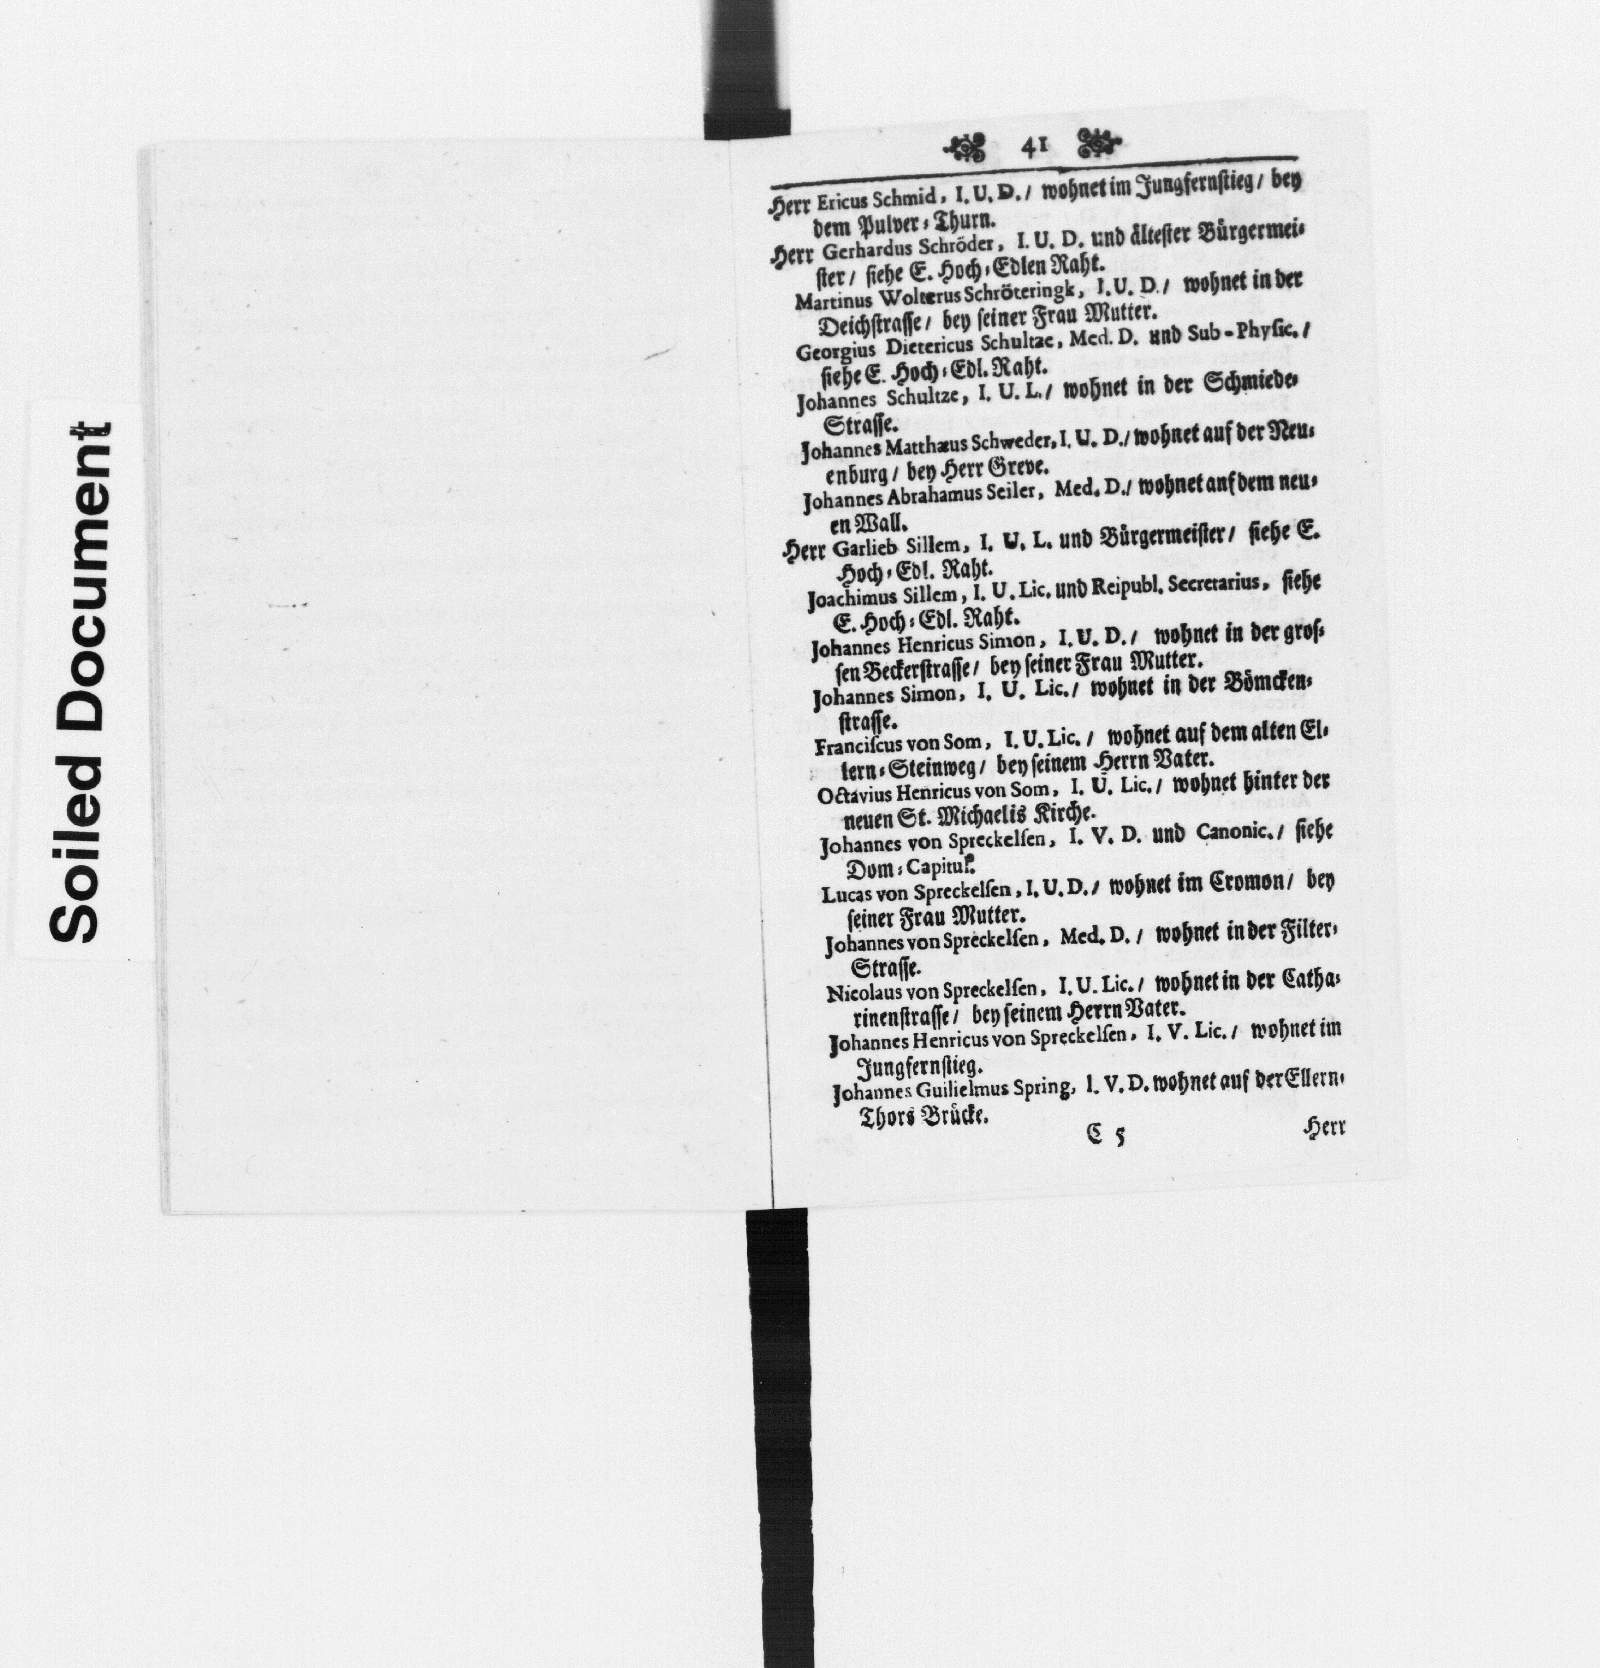 Soiled Document
41
Herr Ericus Schmid, I. U. D. / wohnet im Jungfernstieg / bey
dem Pulver-Thurn.
Herr Gerhardus Schröder, I. U. D. und ältester Bürgermei-
ster / siehe E. Hoch-Edlen Raht.
Martinus Wolterus Schröteringk, I. U. D. / wohnet in der
Deichstrasse / bey seiner Frau Mutter.
Georgius Dietericus Schultze, Med. D. und Sub-Physic. /
siehe E. Hoch-Edl. Raht.
Johannes Schultze, I. U. L. / wohnet in der Schmiede-
Strasse.
Johannes Matthæus Schweder, I. U. D. / wohnet auf der Neu-
enburg / bey Herr Greve.
Johannes Abrahamus Seiler, Med. D. / wohnet anf dem neu-
en Wall.
Herr Garlieb Sillem, I. U. L. und Bürgermeister / siehe E.
Hoch-Edl. Raht.
Joachimus Sillem, I. U. Lic. und Reipubl. Secretarius, siehe
E. Hoch-Edl. Raht.
Johannes Henricus Simon, I. U. D. / wohnet in der gros-
sen Beckerstrasse / bey seiner Frau Mutter.
Johannes Simon, I. U. Lic. / wohnet in der Bömcken-
strasse.
Franciscus von Som, I. U. Lic. / wohnet auf dem alten El-
lern-Steinweg / bey seinem Herrn Vater.
Octavius Henricus von Som, I. U. Lic. / wohnet hinter der
neuen St. Michaelis Kirche.
Johannes von Spreckelsen, I. V. D. und Canonic. / siehe
Dom-Capitul.
Lucas von Spreckelsen, I. U. D. / wohnet im Cromon / bey
seiner Frau Mutter.
Johannes von Spreckelsen, Med. D. / wohnet in der Filter-
Strasse.
Nicolaus von Spreckelsen, I. U. Lic. / wohnet in der Catha-
rinenstrasse / bey seinem Herrn Vater.
Johannes Henricus von Spreckelsen, I. V. Lic. / wohnet im
Jungfernstieg.
Johannes Guilielmus Spring, I. V. D. wohnet auf der Ellern-
Thors Brücke.
C 5 Herr